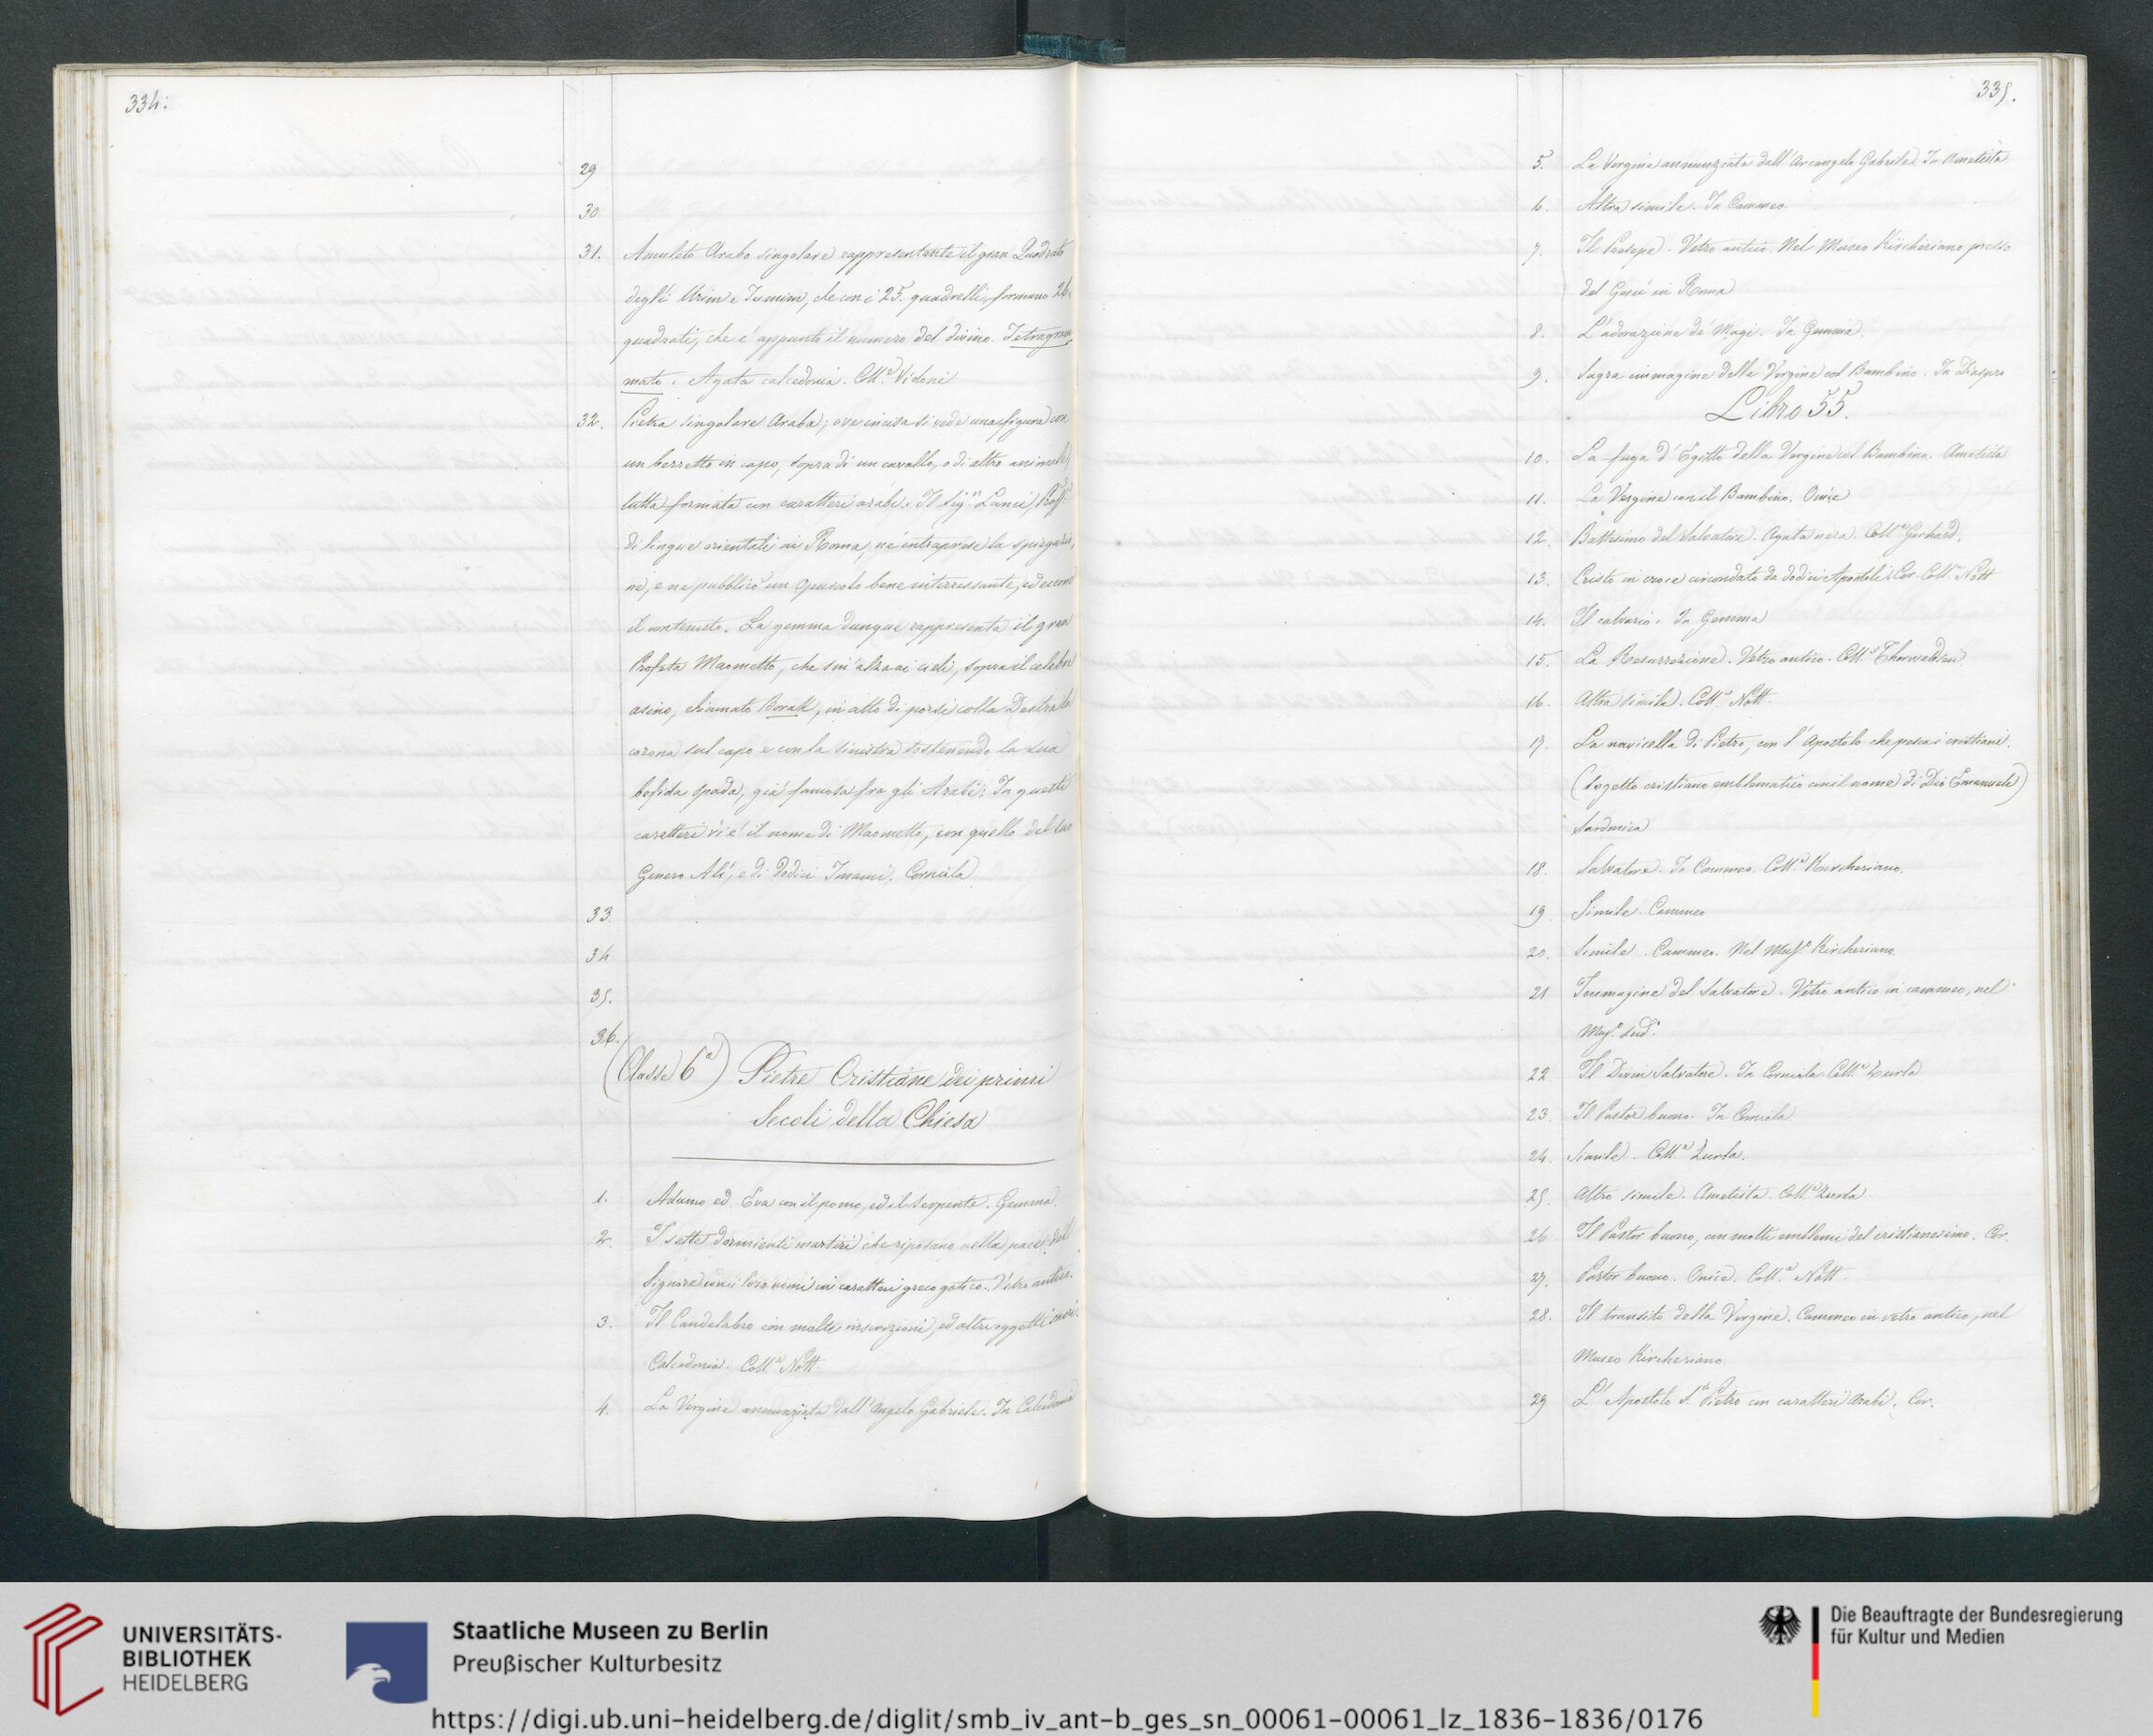 334.
29
30
31. Amuleto Arabo singolare rappresentante il gran Quadrato
degli Urim e Tumim, che con i 25. quadrelli, formano 26.
quadrati, che è appunto il numero del divino. Tetragram
mato. Agata calcedonia. Coll.ᵉ Vidoni
32. Pietra singolare Araba; ove incisa si vede una figura con
un berretto in capo, sopra di un cavallo, o di altro animale,
tutta formata con caratteri arabi. Il Sig.ʳ Lanci, Prof.ᵉ
di lingue orientali in Roma, ne intraprese la spiegazio,
ne, e ne pubblicò un opuscolo bene interressante, ed eccone
il contenuto. La gemma dunque rappresenta il gran
Profeta Maometto, che s'inalza ai cieli, sopra il celebre
asino, chiamato Borak, in atto di porsi colla Destra la
corona sul capo e con la sinistra sostenendo la sua
befida spada, già famosa fra gli Arabi. In questi
caratteri vi è il nome di Maometto, con quello del suo
Genero Alì, e di dodici Imami. Corniola
33.
34
35.
36.
(Classe 6ᵃ) Pietre Cristiane dei primi
Secoli della Chiesa
1. Adamo ed Eva con il pomo, ed il serpente. Gemma.
2. I sette dormienti martiri che riposano nella pace del
Signore con i loro nomi in caratteri greco gotico. Vetro antico.
3. Il Candelabro con molte inscrizioni, ed altri oggetti sacri.
Calcedonia. Coll.ᵉ Nott.
4. La Vergine annunziata dall' Angelo Gabriele. In Calcedonia
335.
5. La Vergine annunziata dall' Arcangelo Gabriele. In Ametista
6. Altra simile. In Cammeo.
7. Il Presepe. Vetro antico. Nel Museo Kircheriano presso
del Gesù in Roma
8. L'adorazione de' Magi. In Gemma.
9. Sagra immagine della Vergine col Bambino. In Diaspro
Libro 55.
10. La fuga d' Egitto della Vergine col Bambino. Ametista
11. La Vergine con il Bambino. Onice
12. Battesimo del Salvatore. Agata nera. Coll.ᵉ Gerhard.
13. Cristo in croce circondato da dodici Apostoli. Cor. Coll.ᵉ Nott
14. Il calvario. In Gemma
15. La Resurrezione. Vetro antico. Coll.ᵉ Thorwaldsen
16. Altra simile. Coll.ᵉ Nott.
17. La navicella di Pietro, con l' Apostolo che pesca i cristiani.
(Sogetto cristiano emblematico con il nome di Dio Emanuele)
Sardonica
18. Salvatore. In Cammeo. Coll.ᵉ Kircheriano.
19 Simile. Cammeo
20. Simile. Cammeo. Nel Mus.º Kircheriano.
21 Immagine del Salvatore. Vetro antico in cammeo, nel
Mus.º Sud.º
22 Il Divin Salvatore. In Corniola. Coll.ᵉ Zurla
23. Il Pastor buono. In Corniola
24. Simile. Coll.ᵉ Zurla.
25. Altro simile. Ametista. Coll.ᵉ Zurla
26 Il Pastor buono, con molti emblemi del cristianesimo. Cor.
27. Pastor buono. Onice. Coll.ᵉ Nott
28. Il transito della Vergine. Cammeo in vetro antico, nel
Museo Kircheriano.
29 L' Apostolo S. Pietro con caratteri Arabi. Cor.
UNIVERSITÄTS-
BIBLIOTHEK
HEIDELBERG
Staatliche Museen zu Berlin
Preußischer Kulturbesitz
Die Beauftragte der Bundesregierung
für Kultur und Medien
https://digi.ub.uni-heidelberg.de/diglit/smb_iv_ant-b_ges_sn_00061-00061_lz_1836-1836/0176